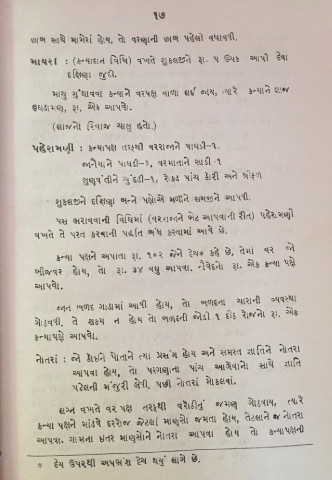 ૧૭
છાબ સાથે મામેરાં હોય, તો વરણાની છાબ પહેલી વધાવવી.
માયરા : (કન્યાદાન વિધિ) વખતે શુકલજીને રૂા. ૫ ઉચક આપી દેવા
દક્ષિણા જુદી.
માથુ ગુંથાવવા કન્યાને વરપક્ષ વાળા લઈ જાય, ત્યારે કન્યાને લાજ
છોડામણ, રૂા. એક આપવો.
(લાજનો રિવાજ ચાલુ હતો.)
પહેરામણી : કન્યાપક્ષ તરફથી વરરાજાને પાઘડી-૧.
જાનૈયાને પાઘડી-૧, વરમાતાને સાડી-૧
લુણવંતીને ચુંદડી-૧, રોકડ પાંચ કોરી અને શ્રીફળ
શુકલજીને દક્ષિણા બન્ને પક્ષોએ મળીને સમજીને આપવી.
પસ ભરાવવાની વિધિમાં (વરરાજાને ભેટ આપવાની રીત) પહેરામણી
વખતે તે પરત કરવાની પદ્ધતિ બંધ કરવામાં આવે છે.
કન્યા પક્ષને અપાતા રૂા. ૧૦૨ જેને દેચ* કહે છે, તેમાં વર જો
બીજવર હોય, તો રૂા. ૩૪ વધુ આપવા. નૈવેદનો રૂા. એક કન્યા પક્ષે
આપવો.
જાન બળદ ગાડામાં આવી હોય, તો બળદના ચારાની વ્યવસ્થા
ગોઠવવી. તે શક્ય ન હોય તો બળદની જોડી ૧ દીઠ રોજનો રૂા. એક
કન્યાપક્ષે આપવો.
નોતરાં : જો કોઈને પોતાને ત્યા પ્રસંગ હોય અને સમસ્ત જ્ઞાતિને નોતરા
આપવા હોય, તો પરગણાના પાંચ આગેવાનો સાથે જ્ઞાતિ
પટેલની મંજુરી લેવી, પછી નોતરાં મોકલવાં.
લગ્ન વખતે વર પક્ષ તરફથી વરોઠીનું જમણ ગોઠવાય, ત્યારે
કન્યા પક્ષને માંડવે દરરોજ જેટલાં માણસો જમતા હોય, તેટલાને જ નોતરા
આપવા. ગામના ઈતર માણસોને નોતરા આપવા હોય તો કન્યાપક્ષની
* દેય ઉપરથી અપભ્રંશ દેચ થયું લાગે છે.